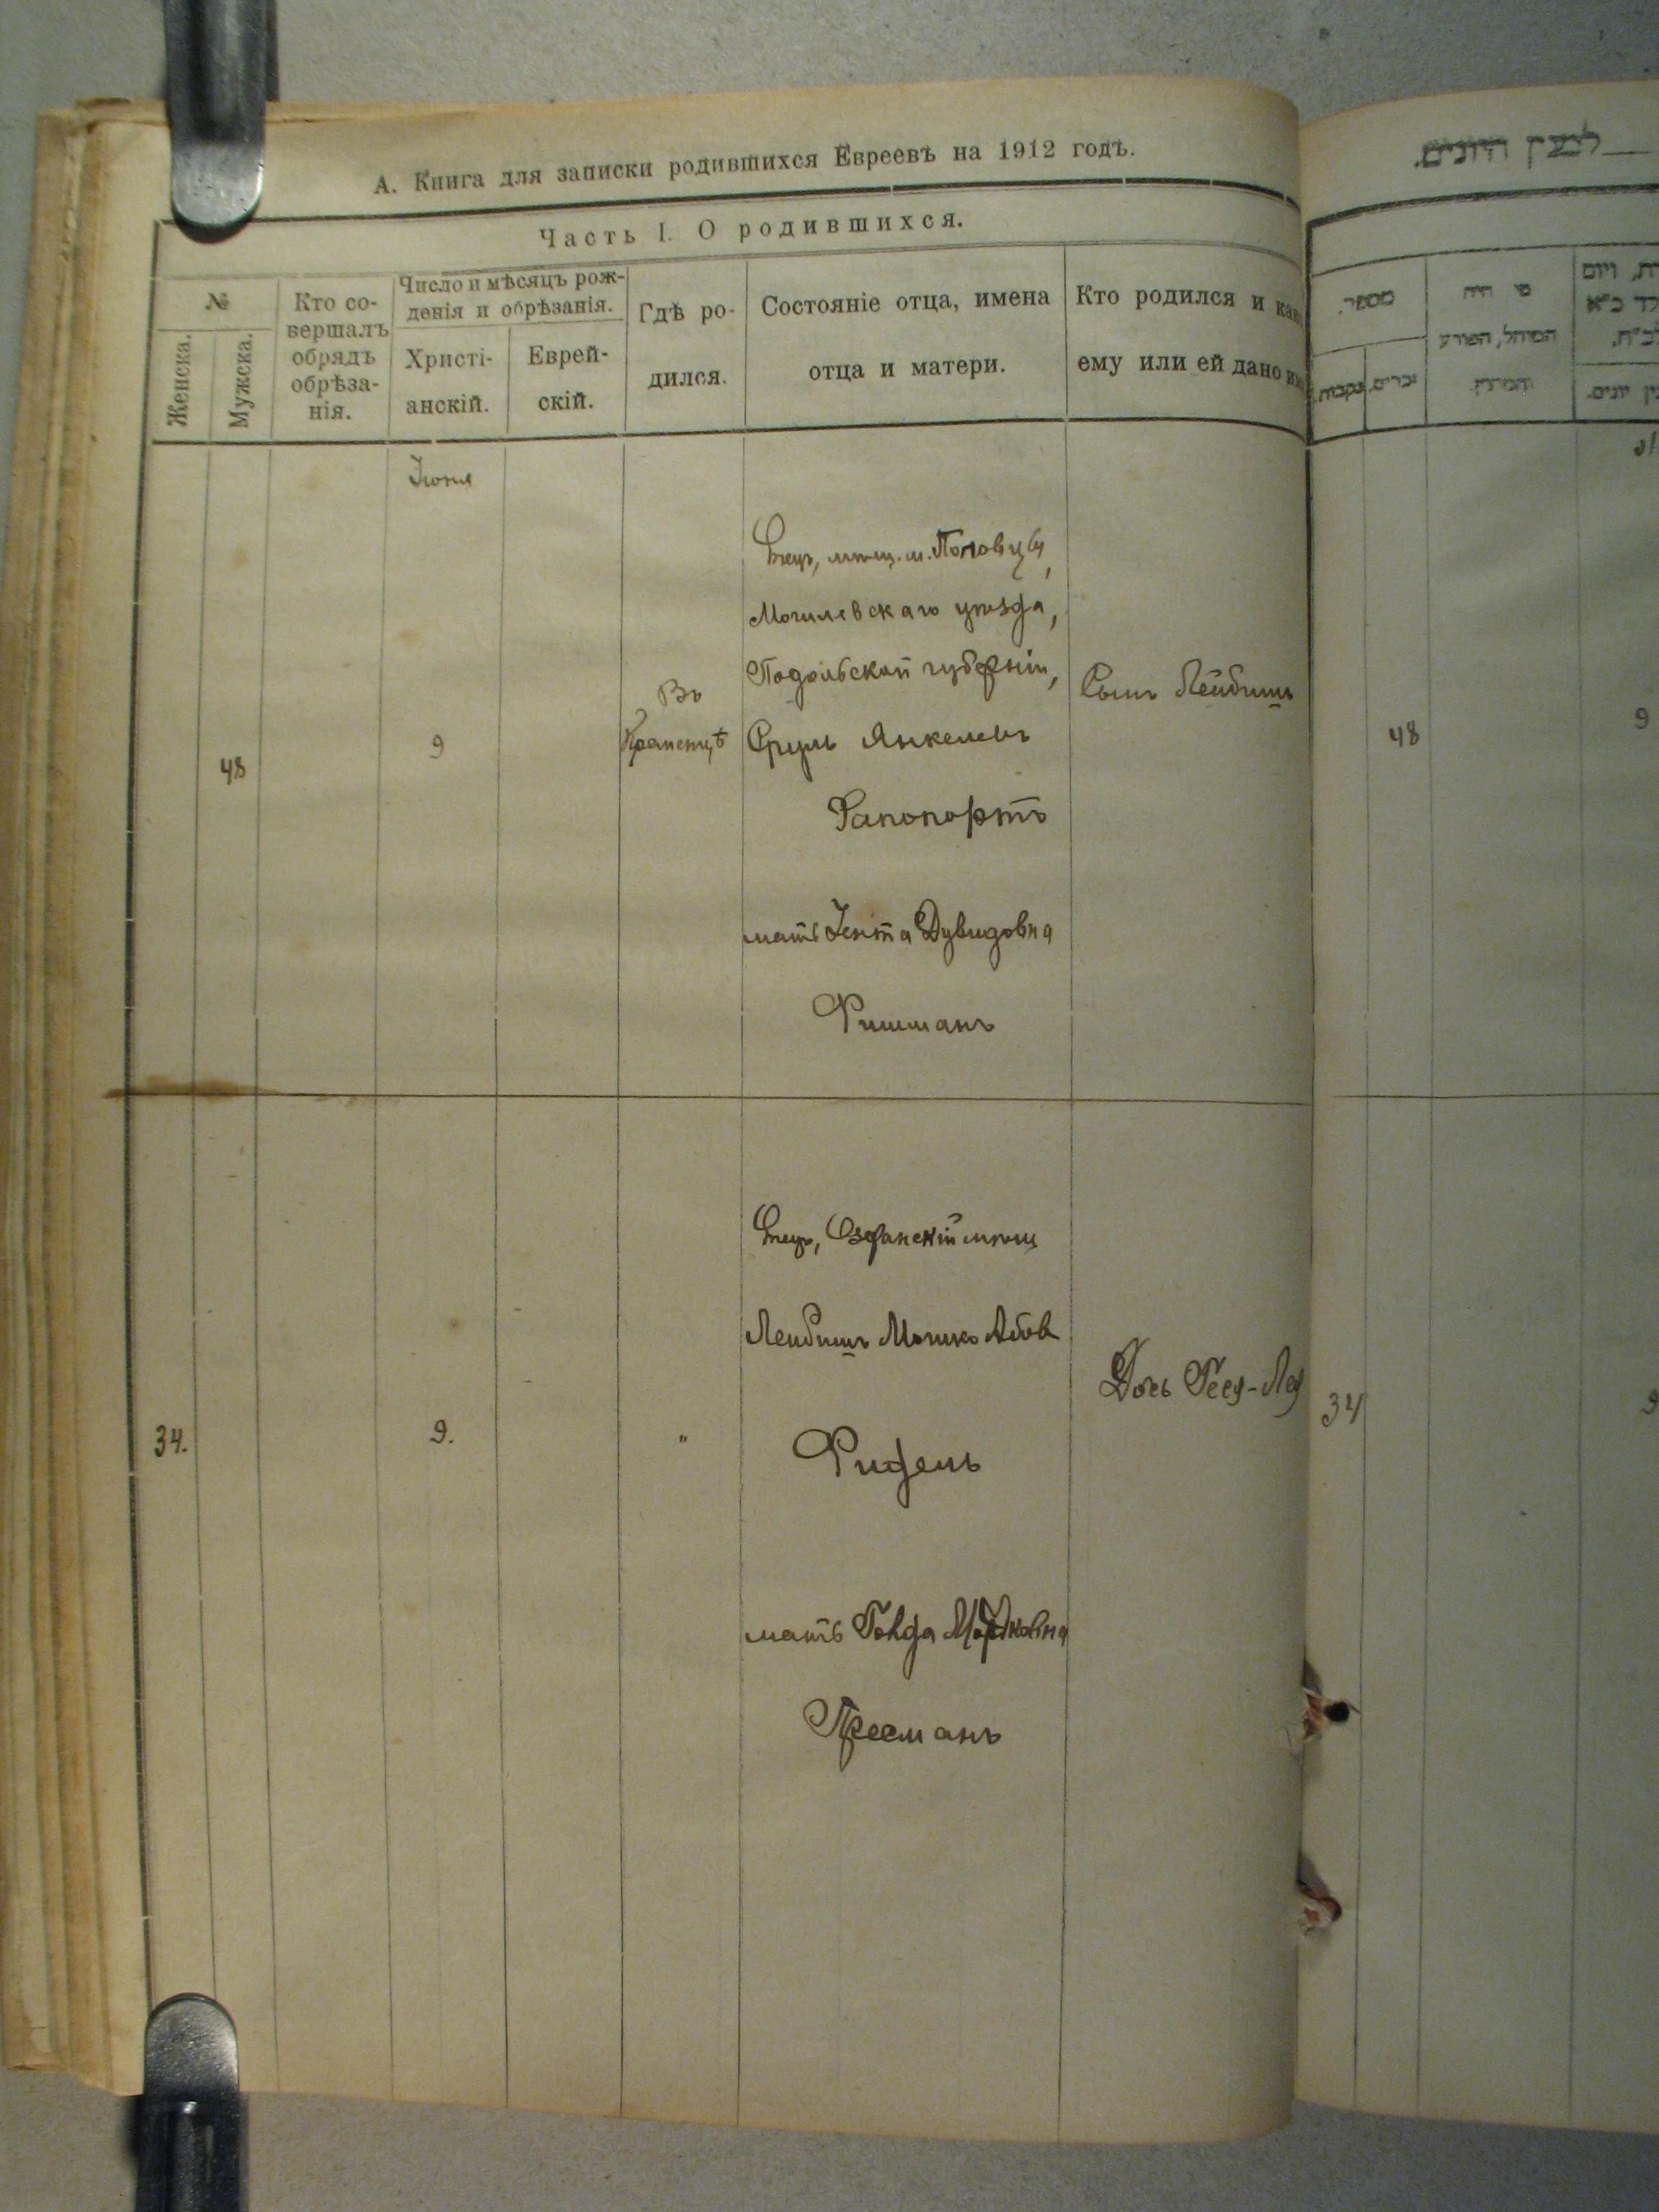 А. Книга для записки родившихся Евреевъ на 1912 годъ.
Часть I. О родившихся.
№
Женска.
Мужска.
Кто со-
вершалъ
обрядъ
обрѣза-
нія.
Число и мѣсяцъ рож-
денія и обрѣзанія.
Христі-
анскій.
Еврей-
скій.
Гдѣ ро-
дился.
Состояніе отца, имена
отца и матери.
Кто родился и как
ему или ей дано им
Іюня
48
9
Въ
Отецъ, мѣщ. м.
Могилевскаго уѣзда,
Подольской губерніи,
Сруль Янкелевъ
Рапопортъ
мать Іента Дувидовна
Фишманъ
Сынъ Лейбишъ
34.
9.
"
Отецъ, мѣщ
Лейбишъ Мошко Абов
Фидель
мать Голда Мордковна
Пресманъ
Дочь Рейз-Лея
לבעין היונים.
מספר.
זכרים.
נקבות.
מי היה
המוהל, הפורע
והמוצץ.
48
9
34
9